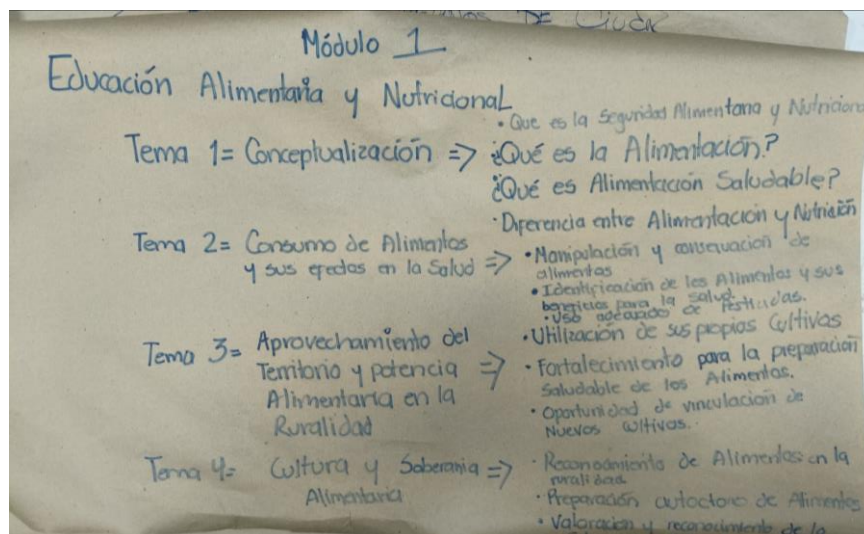 DE
Módulo 1
Educación Alimentaria y Nutricional
• Que es la Seguridad Alimentaria y Nutricional
Tema 1= Conceptualización => ¿Qué es la Alimentación?
¿Qué es Alimentación Saludable?
• Diferencia entre Alimentación y Nutrición
Tema 2= Consumo de Alimentos
y sus efectos en la Salud => • Manipulación y conservación de
alimentos
• Identificación de los Alimentos y sus
beneficios para la salud.
• Uso adecuado de Pesticidas.
Tema 3= Aprovechamiento del
Territorio y potencia
Alimentaria en la
Ruralidad =>
• Utilización de sus propios Cultivos
• Fortalecimiento para la preparación
Saludable de los Alimentos.
• Oportunidad de vinculación de
Nuevos cultivos.
Tema 4= Cultura y Soberania =>
Alimentaria
• Reconocimiento de Alimentos en la
ruralidad
• Preparación autoctono de Alimentos
• Valoracion y reconocimiento de la